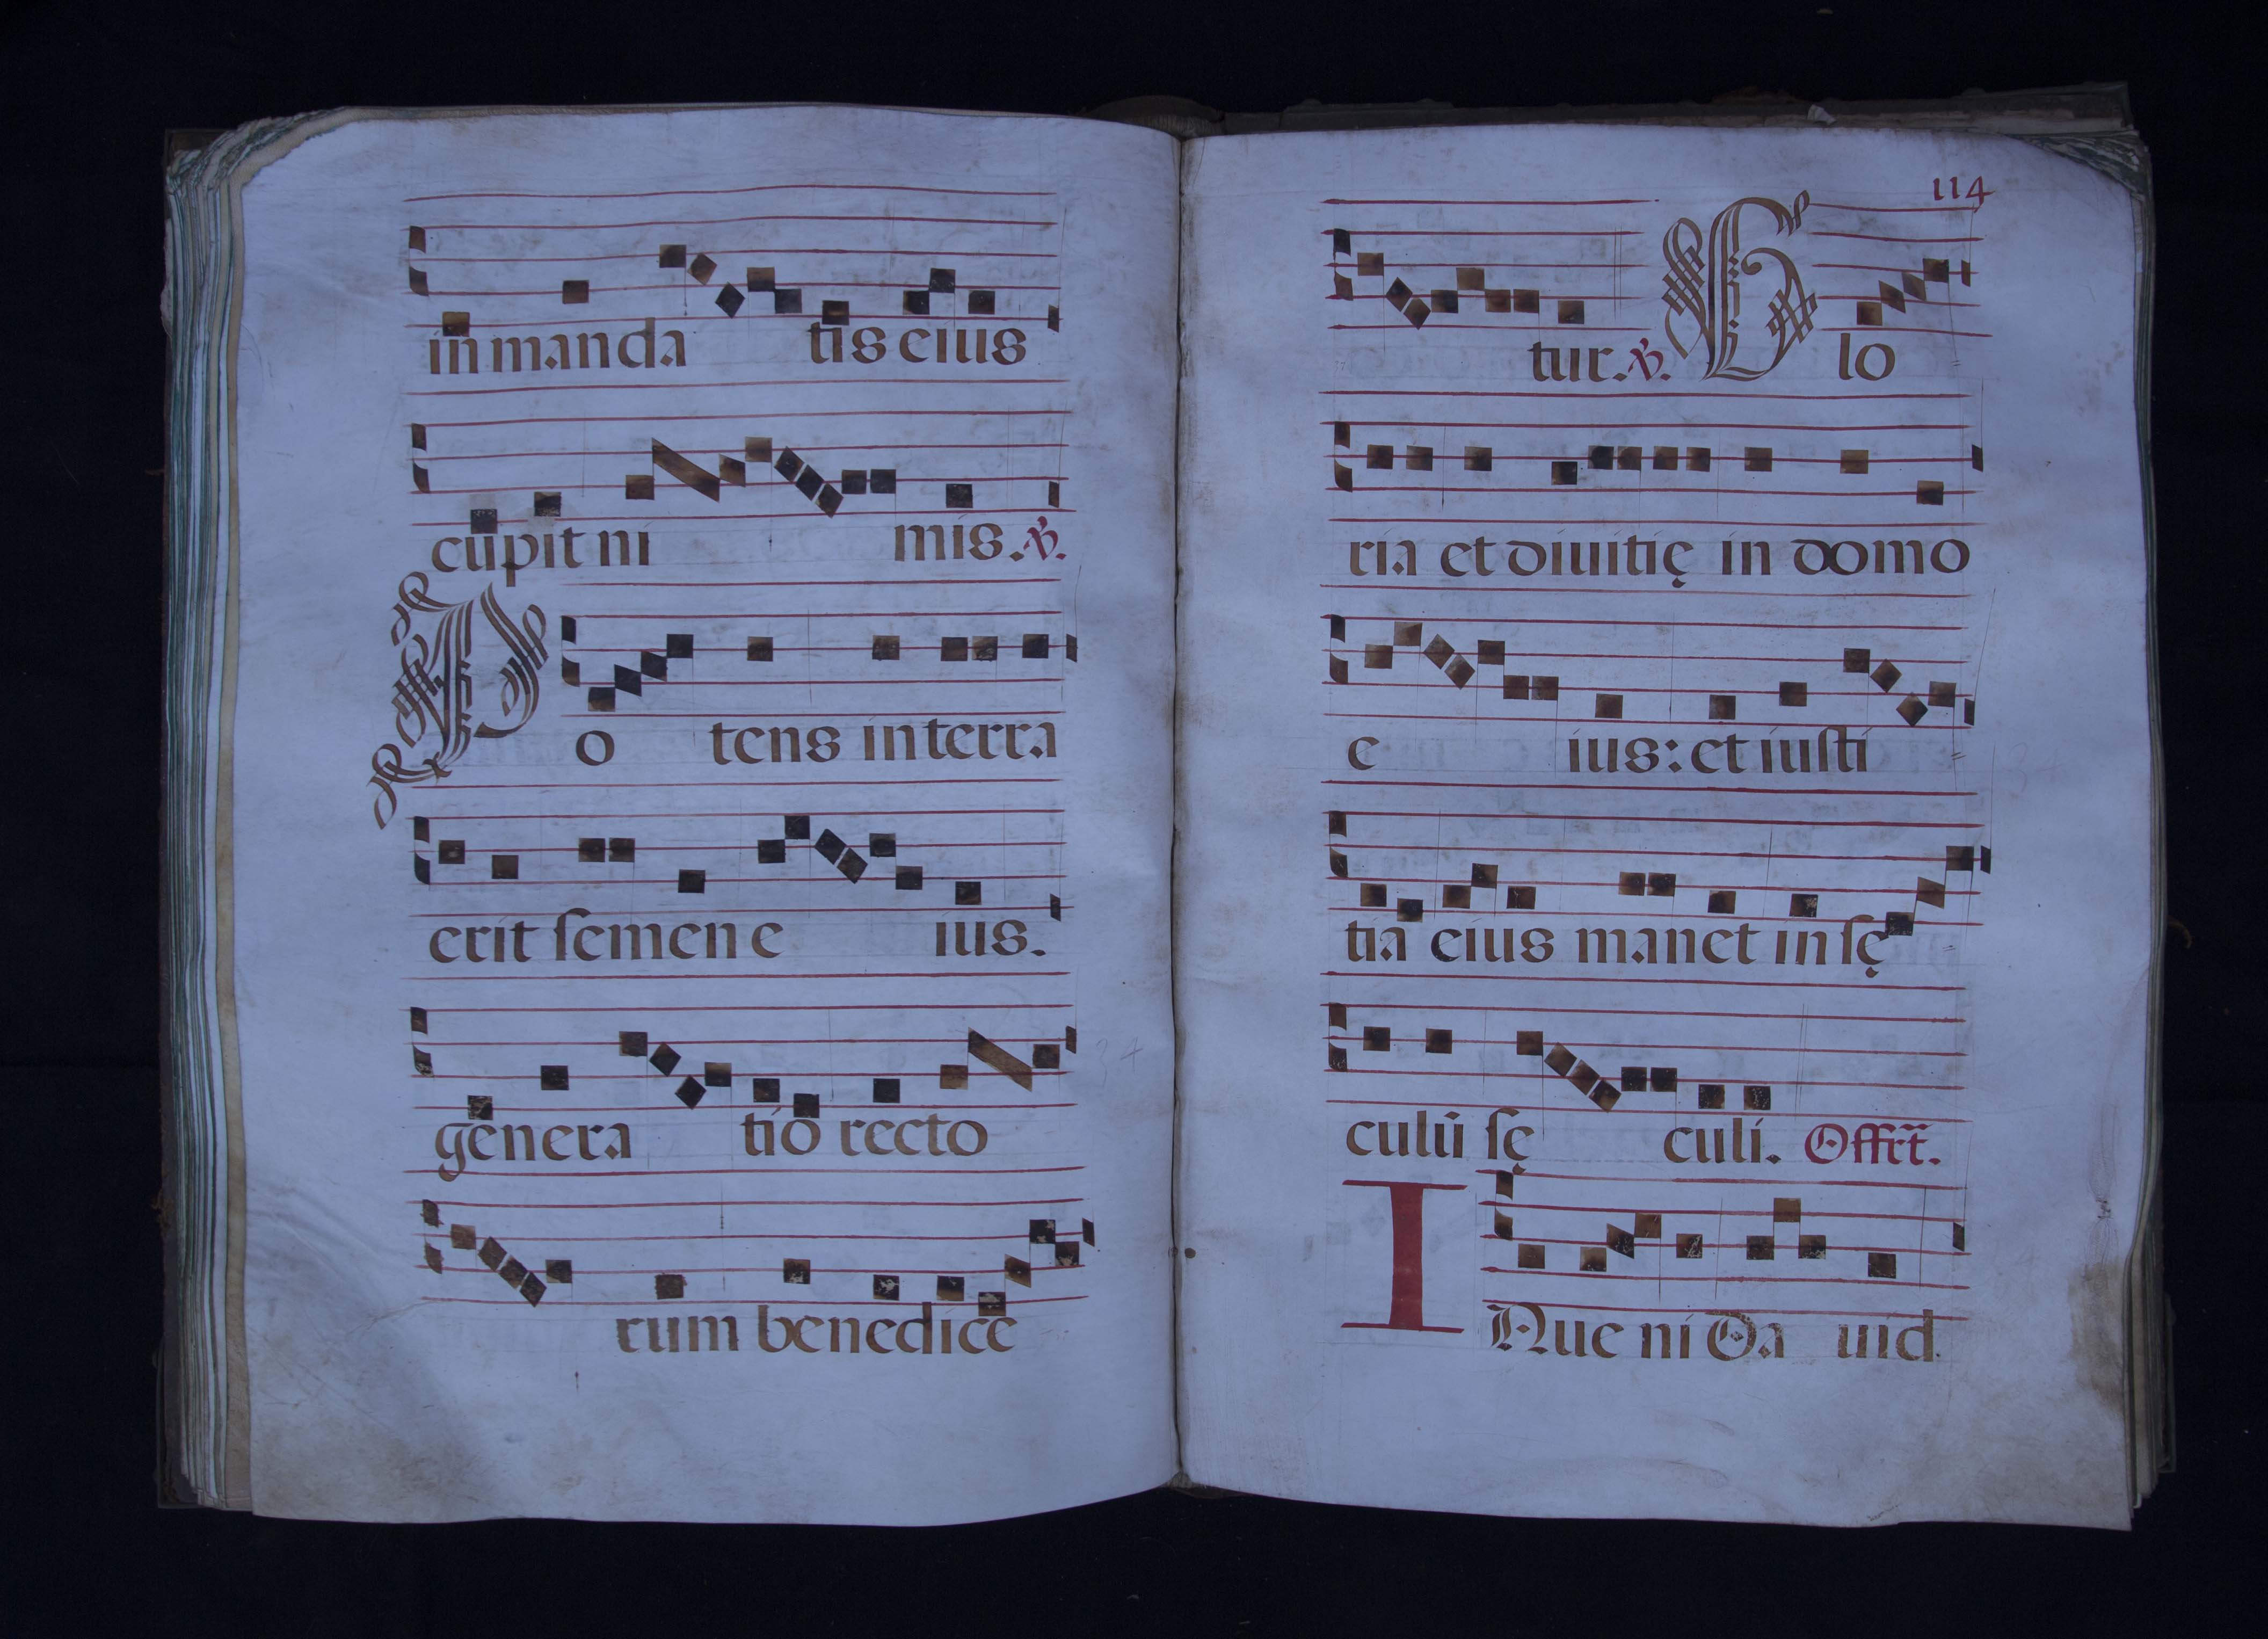 in manda tis eius
cupit ni mis. ℣.
Po tens in terra
erit ſemen e ius.
genera tio recto
rum benedice
114
tur. ℣. Glo
ria et diuitię in domo
e ius: et iuſti
tia eius manet in ſę
culū ſę culi. Offrt̄.
INue ni Da uid